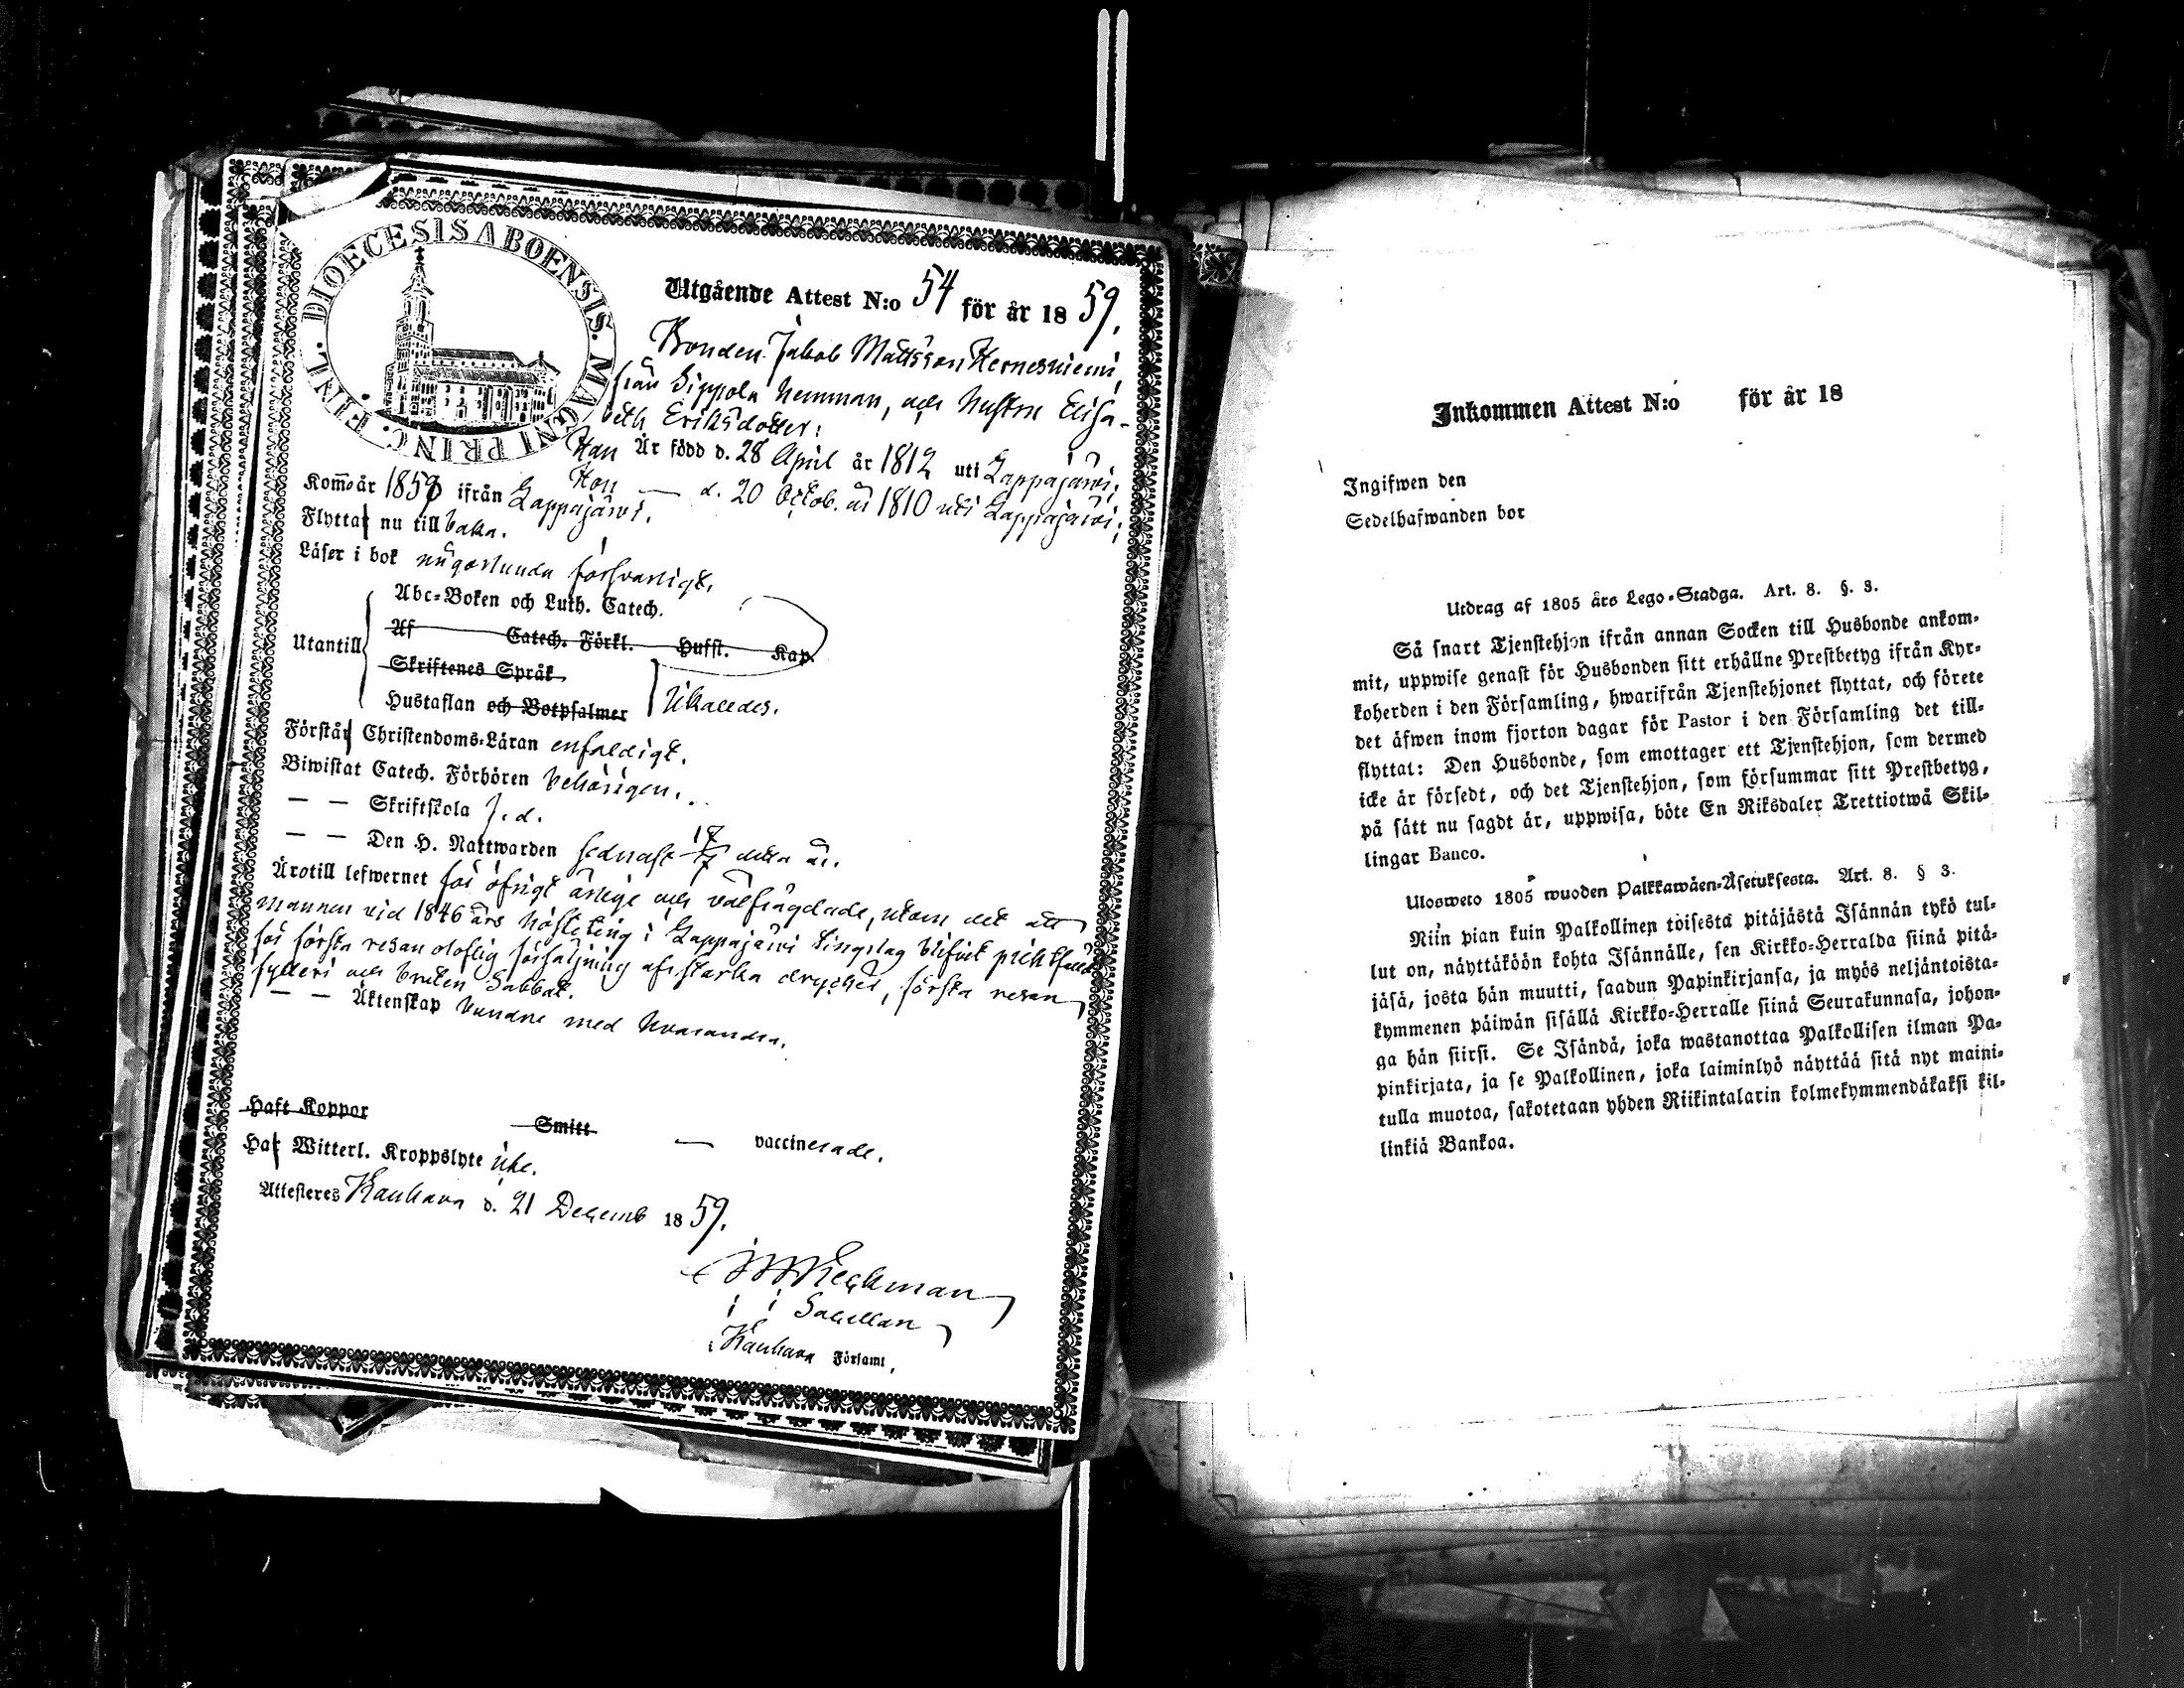 DIOECESIS ABOENSIS. MAGNI PRINC. FINL.
Utgående Attest N:o 54 för år 1859.
Bonden Jakob Mattsson Hernesniemi,
från Sippola hemman, och hustru Elisa-
beth Eriksdotter;
Han Är född d. 28 April år 1812 uti Lappajärvi;
Hon — d. 20 Octob. år 1810 uti Lappajärvi;
Kom̄o år 1859 ifrån Lappajärvi.
Flytta nu till baka.
Läser i bok någorlunda försvarligt.
Utantill
Abc-Boken och Luth. Catech.
Af Catech. Förkl. Husst. Kap.
Skriftenes Språk
Hustaflan och Botpsalmer
likaledes.
Förstå Christendoms-Läran enfaldigt.
Biwistat Catech. Förhören behörigen.
— — Skriftskola J. d.
— — Den H. Nattwarden sednast 17/7 detta år.
Äro till lefwernet för öfrigt ärlige och välfrägdade, utom det att
mannen vid 1846 års hösteting i Lappajärvi tingslag blifvit pliktfäld
för första resan oloflig försäljning af starka drycker, första resan
fylleri och bruten Sabbat.
— — Äktenskap bundne med hvarandra.
Haft Koppor Smitt — vaccinerade.
Haf Witterl. Kroppslyte icke.
Attesteres Kauhava d. 21 Decemb 1859.
Heckman
Sacellan
Kauhava Församl.
Inkommen Attest N:o för år 18
Ingifwen den
Sedelhafwanden bor
Utdrag af 1805 års Lego-Stadga. Art. 8. §. 3.
Så snart Tjenstehjon ifrån annan Socken till Husbonde ankom-
mit, uppwise genast för Husbonden sitt erhållne Prestbetyg ifrån Kyr-
koherden i den Församling, hwarifrån Tjenstehjonet flyttat, och förete
det äfwen inom fjorton dagar för Pastor i den Församling det till-
flyttat: Den Husbonde, som emottager ett Tjenstehjon, som dermed
icke är försedt, och det Tjenstehjon, som försummar sitt Prestbetyg,
på sätt nu sagdt är, uppwisa, böte En Riksdaler Trettiotwå Skil-
lingar Banco.
Ulosweto 1805 wuoden Palkkawäen-Asetuksesta. Art. 8. § 3.
Niin pian kuin Palkollinen toisesta pitäjästä Isännän tykö tul-
lut on, näyttäköön kohta Isännälle, sen Kirkko-Herralda siinä pitä-
jäsä, josta hän muutti, saadun Papinkirjansa, ja myös neljäntoista-
kymmenen päiwän sisällä Kirkko-Herralle siinä Seurakunnasa, johon-
ga hän siirsi. Se Isändä, joka wastanottaa Palkollisen ilman Pa-
pinkirjata, ja se Palkollinen, joka laiminlyö näyttää sitä nyt maini-
tulla muotoa, sakotetaan yhden Riikintalarin kolmekymmendäkaksi kil-
linkiä Bankoa.